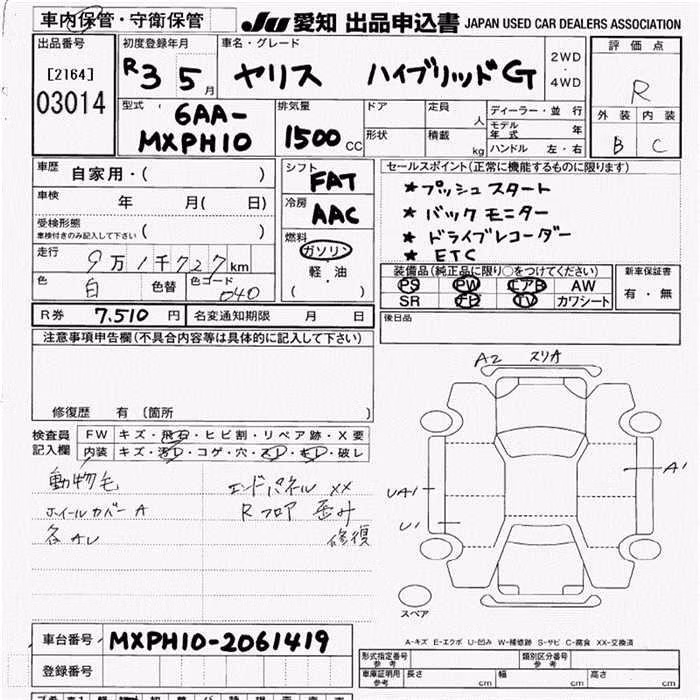 車内保管・守衛保管 JU 愛知 出品申込書 JAPAN USED CAR DEALERS ASSOCIATION
出品番号 初度登録年月 車名・グレード 評価点
[2164] R3 5月 ヤリス ハイブリッドG 2WD・4WD R
03014
型式 排気量 ドア 定員 人 ディーラー・並行 外装 内装
6AA-MXPH10 1500CC 形状 積載 kg モデル年式 年 B C
ハンドル 左・右
車歴 自家用・( ) シフト FAT セールスポイント(正常に機能するものに限ります)
車検 年 月( 日) 冷房 AAC ★プッシュスタート
受検形態 ( ) ★バックモニター
車検付きのみ記入して下さい 燃料 ガソリン ★ドライブレコーダー
走行 9万1千727km 軽・油 ★ETC
色 白 色替 色コード 040 ( ) 装備品(純正品に限り○をつけてください) 新車保証書
PS PW エアB AW 有・無
SR ナビ TV カワシート
R券 7.510円 名変通知期限 月 日 後日品
注意事項申告欄(不具合内容等は具体的に記入して下さい)
修復歴 有 (箇所 )
検査員記入欄 FW キズ・飛石・ヒビ割・リペア跡・X要
内装 キズ・汚レ・コゲ・穴・スレ・キレ・破レ
動物毛 エンドパネル XX
ホイールカバーA Rフロア 歪み
各スレ 修復
A2 スリA
A1
UA1
U1
スペア
A-キズ E-エクボ U-凹み W-補修跡 S-サビ C-腐食 XX-交換済
車台番号 MXPH10-2061419
形式指定番号 参考 類別区分番号 参考
登録番号 車庫証明用 参考 長さ cm 幅 cm 高さ cm